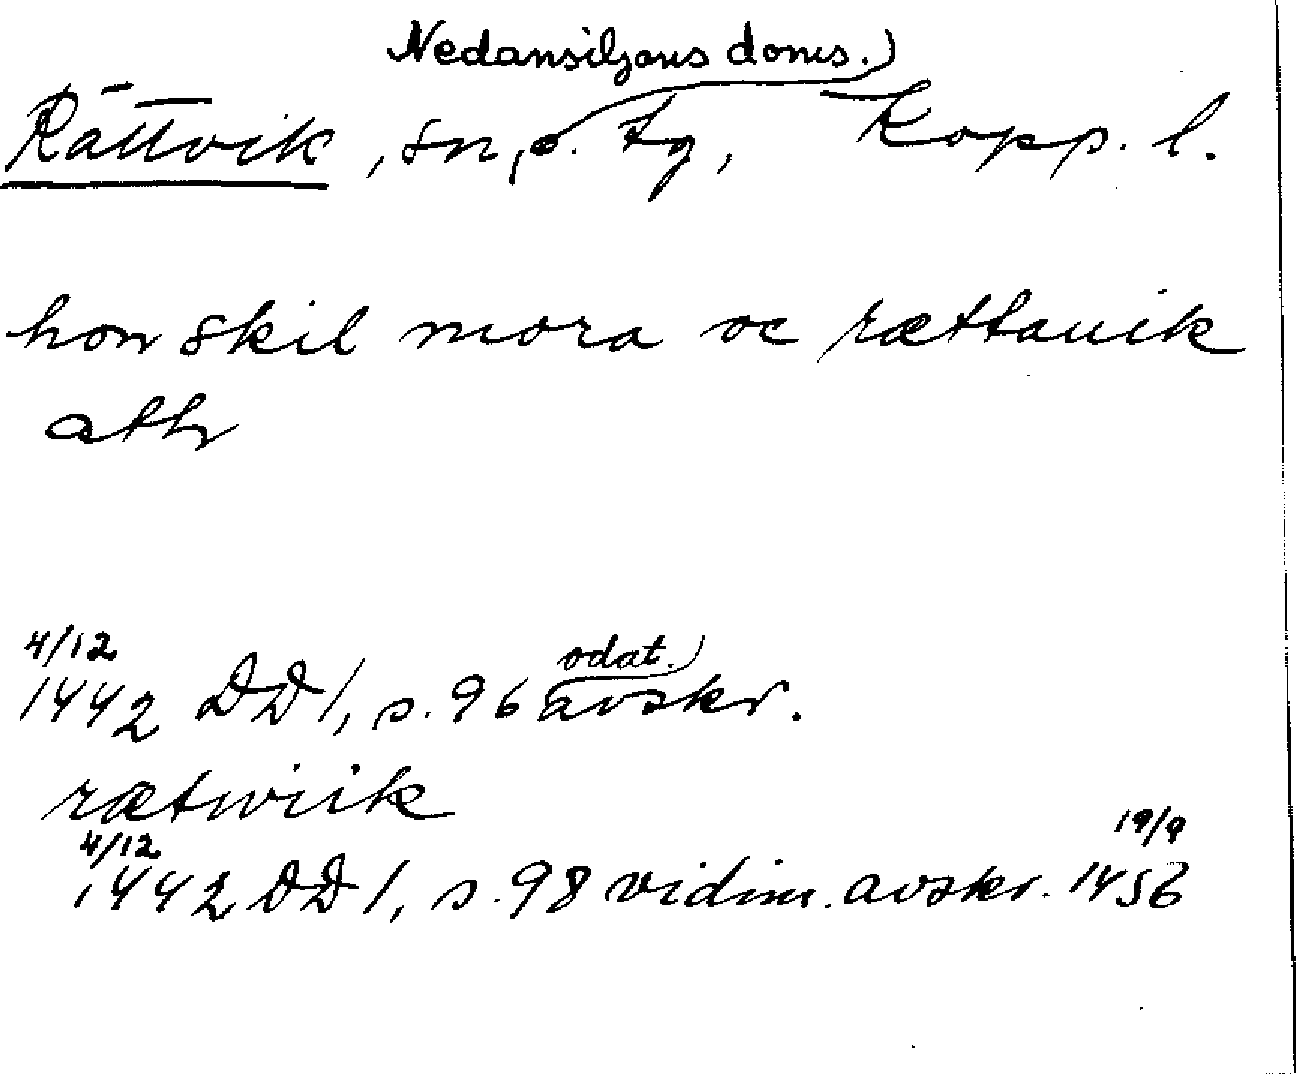 Nedansiljans doms.)
Rättvik, sn, o. tg, Kopp. l.
hon skil mora oc rættauik
ath
4/12
odat.)
1442 DD 1, s. 96 avskr.
rætwiik
4/12
19/9
1442 DD 1, s. 98 vidim. avskr. 1456